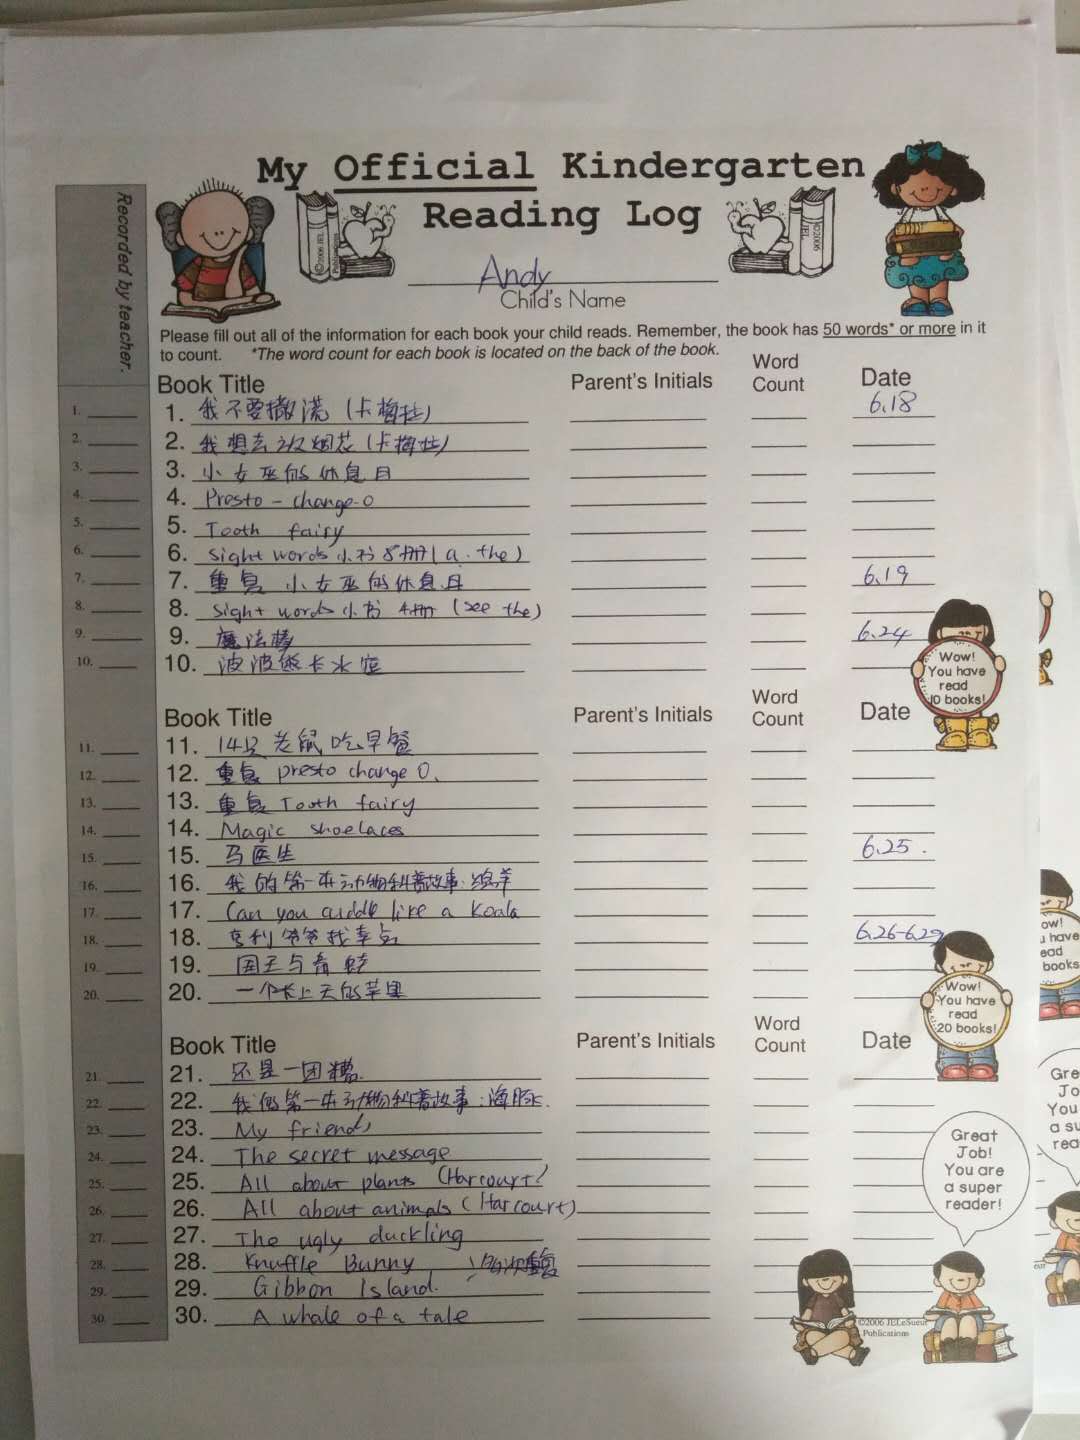 My Official Kindergarten
Reading Log
©2006 JEL Publications
©2006 JEL
Andy
Child's Name
Recorded by teacher.
Please fill out all of the information for each book your child reads. Remember, the book has 50 words* or more in it
to count. *The word count for each book is located on the back of the book.
Book Title Parent's Initials Word Count Date
1. 1. 我不要撒谎（卡梅拉） 6.18
2. 2. 我想去放烟花（卡梅拉）
3. 3. 小女巫的休息日
4. 4. Presto - change-O
5. 5. Tooth fairy
6. 6. Sight words 小书 8册 (a. the)
7. 7. 重复 小女巫的休息日 6.19
8. 8. Sight words 小书 4册 (see the)
9. 9. 魔法 6.24
10. 10. 波波熊卡
Wow!
You have
read
10 books!
Book Title Parent's Initials Word Count Date
11. 11. 14只老鼠吃早餐
12. 12. 重复 presto change O.
13. 13. 重复 Tooth fairy
14. 14. Magic shoelaces
15. 15. 马医生 6.25.
16. 16. 我的第一本动物科普故事:绵羊
17. 17. Can you cuddle like a Koala
18. 18. 亨利爷爷找幸运 6.26-6.29
19. 19. 国王与青蛙
20. 20. 一个长上天的苹果
Wow!
You have
read
20 books!
Book Title Parent's Initials Word Count Date
21. 21. 还是一团糟.
22. 22. 我的第一本动物科普故事:海豚.
23. 23. My friends
24. 24. The secret message
25. 25. All about plants (Harcourt)
26. 26. All about animals (Harcourt)
27. 27. The ugly duckling
28. 28. Knuffle Bunny 多次重复
29. 29. Gibbon Island.
30. 30. A whale of a tale
Great
Job!
You are
a super
reader!
©2006 JELeSueur
Publications